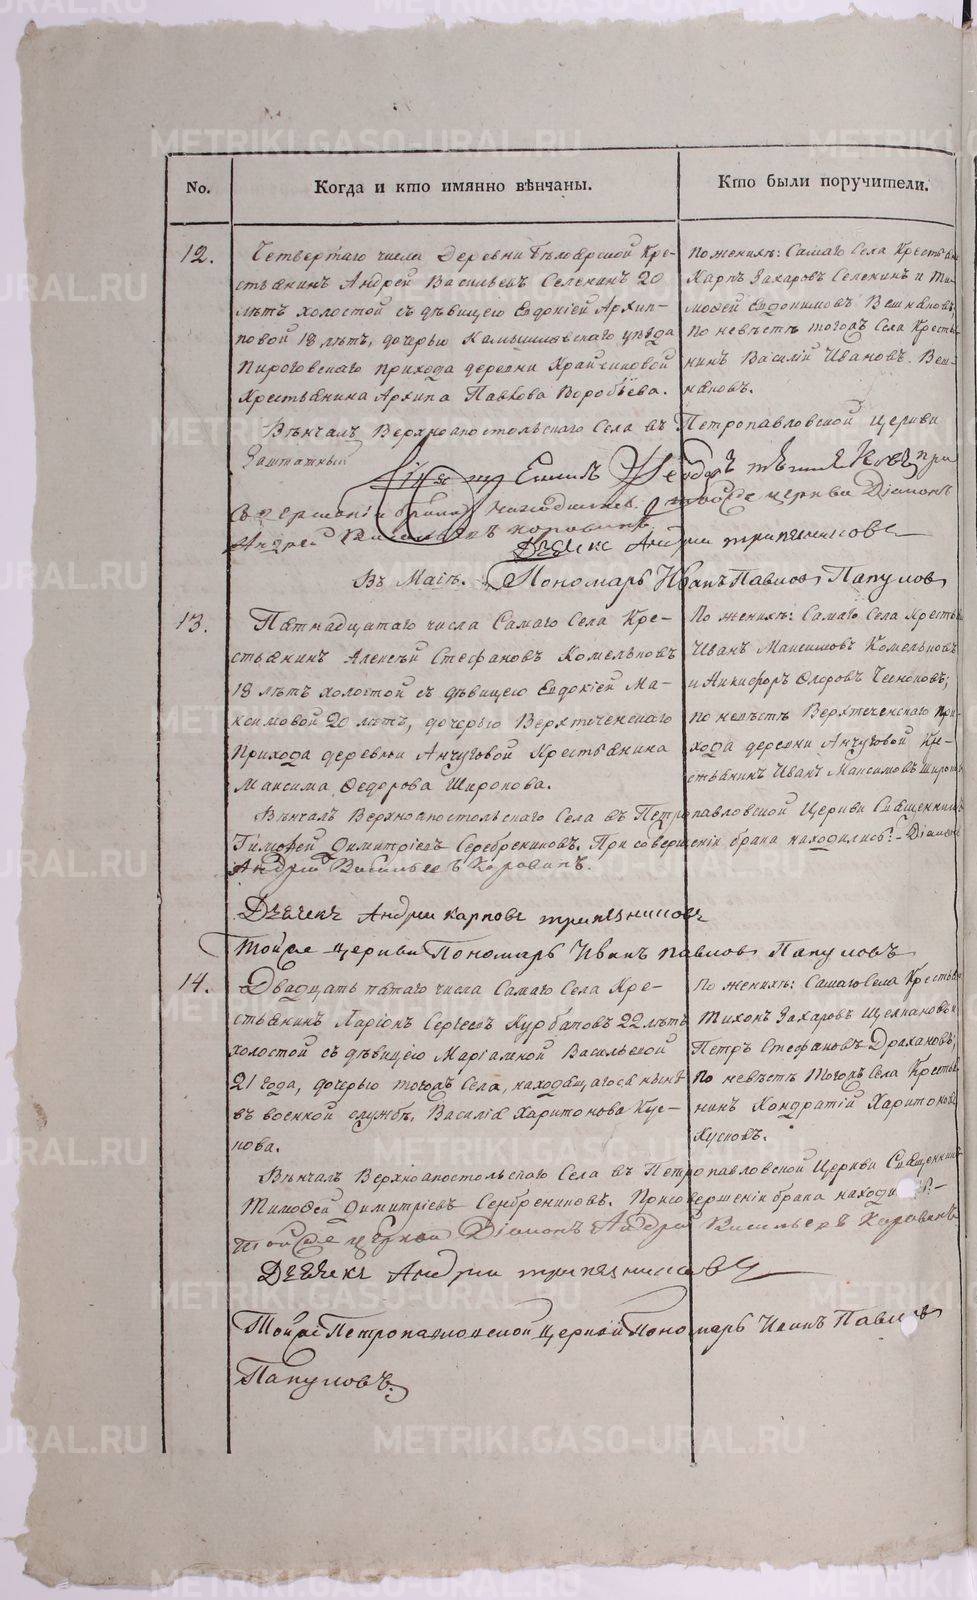 No.
Когда и кто имянно вѣнчаны.
Кто были поручители.
12.
Четвертаго числа Деревни Бѣлоярской Кре-
стьянинъ Андрей Васильевъ Селенинъ 20
лѣтъ холостой съ дѣвицею Евдокіей Архип-
повой 18 лѣтъ, дочерью Камышловскаго уѣзда
Пироговскаго прихода деревни
Крестьянина Архипа Павлова Воробьева.
По женихѣ: Самаго Села
Карпъ Захаровъ Селенинъ и
Евдокимовъ
По невѣстѣ тогожъ Села
нинъ Василій Ивановъ
Вѣнчалъ Верхноапостольскаго Села въ Петропавловской Церкви
Заштатный
при
церкви Діаконъ
Андрей
Дьячекъ Андрей
Въ Маiѣ. Пономарь Иванъ Павловъ Папуловъ
13.
Пятнадцатаго числа Самаго Села Кре-
стьянинъ Алексѣй Стефановъ Комельковъ
18 лѣтъ холостой съ дѣвицею Евдокіей Ма-
ксимовой 20 лѣтъ, дочерью Верхтеченскаго
Прихода деревни Анчуговой Крестьянина
Максима Ѳедорова Широкова.
По женихѣ: Самаго Села
Иванъ Максимовъ Комельковъ
и Никифоръ
по невѣстѣ Верхтеченскаго При-
хода деревни Анчуговой Кре-
стьянинъ Иванъ Максимовъ
Вѣнчалъ Верхноапостольскаго Села въ Петропавловской Церкви Священникъ
Тимоѳей Димитріевъ Серебрениковъ. При совершеніи брака находились:-
Андрей Васильевъ Коровинъ.
Дьячекъ Андрей Карповъ
Тойже церкви Пономарь Иванъ Павловъ Папуловъ
14.
Двадцать пятаго числа Самаго Села Кре-
стьянинъ Ларіонъ Сергѣевъ Курбатовъ 22 лѣтъ
холостой съ дѣвицею Маріамной Васильевой
21 года, дочерью тогожъ Села, находящагося нынѣ
въ военной службѣ, Василія Харитонова Кус-
кова.
По женихѣ: Самаго Села
Тихонъ Захаровъ
Петръ Стефановъ
По невѣстѣ Тогожъ Села
нинъ Кондратій Харитоновъ
Кусковъ.
Вѣнчалъ Верхноапостольскаго Села въ Петропавловской Церкви Священникъ
Тимоѳей Димитріевъ Серебрениковъ. При совершеніи брака
Тойже церкви Діаконъ Андрей Васильевъ Коровинъ
Дьячекъ Андрей
Тойже Петропавловской церкви Пономарь Иванъ Павловъ
Папуловъ.
METRIKI.GASO-URAL.RU